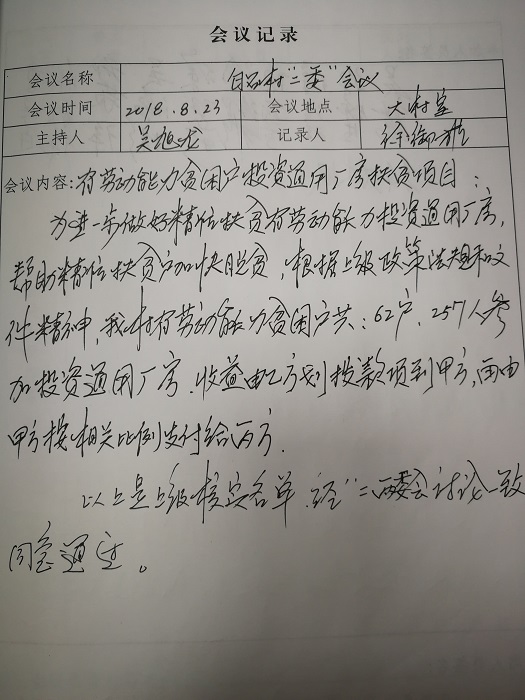 会议记录
会议名称 白石村"二委"会议
会议时间 2018.8.23 会议地点 大村室
主持人 吴旭龙 记录人 徐
会议内容:有劳动能力贫困户投资通用厂房扶贫项目:
为进一步做好精位扶贫有劳动能力投资通用厂房,
帮助精位扶贫户加快脱贫,根据上级政策法规和文
件精神,我村有劳动能力贫困户共:62户,257人参
加投资通用厂房.收益由乙方划拨款项到甲方,再由
甲方按相关比例支付给丙方.
以上是上级核实名单.经"二两委会讨论一致
同意通过。